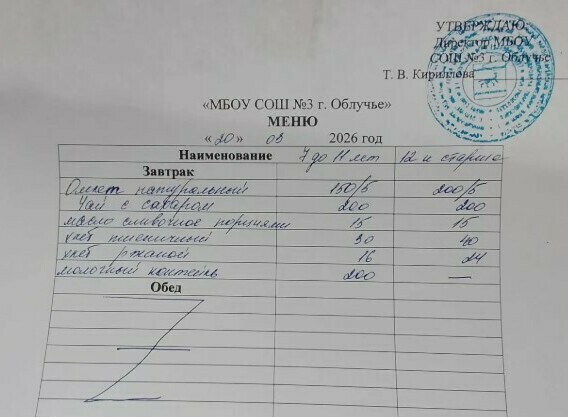 УТВЕРЖДАЮ
Директор МБОУ
СОШ №3 г. Облучье
Т. В. Кириллова
«МБОУ СОШ №3 г. Облучье»
МЕНЮ
« 20 » 03 2026 год
Наименование 7 до 11 лет 12 и старше
Завтрак
Омлет натуральный 150/5 200/5
Чай с сахаром 200 200
масло сливочное порциями 15 15
хлеб пшеничный 30 40
хлеб ржаной 16 24
молочный коктейль 200 —
Обед